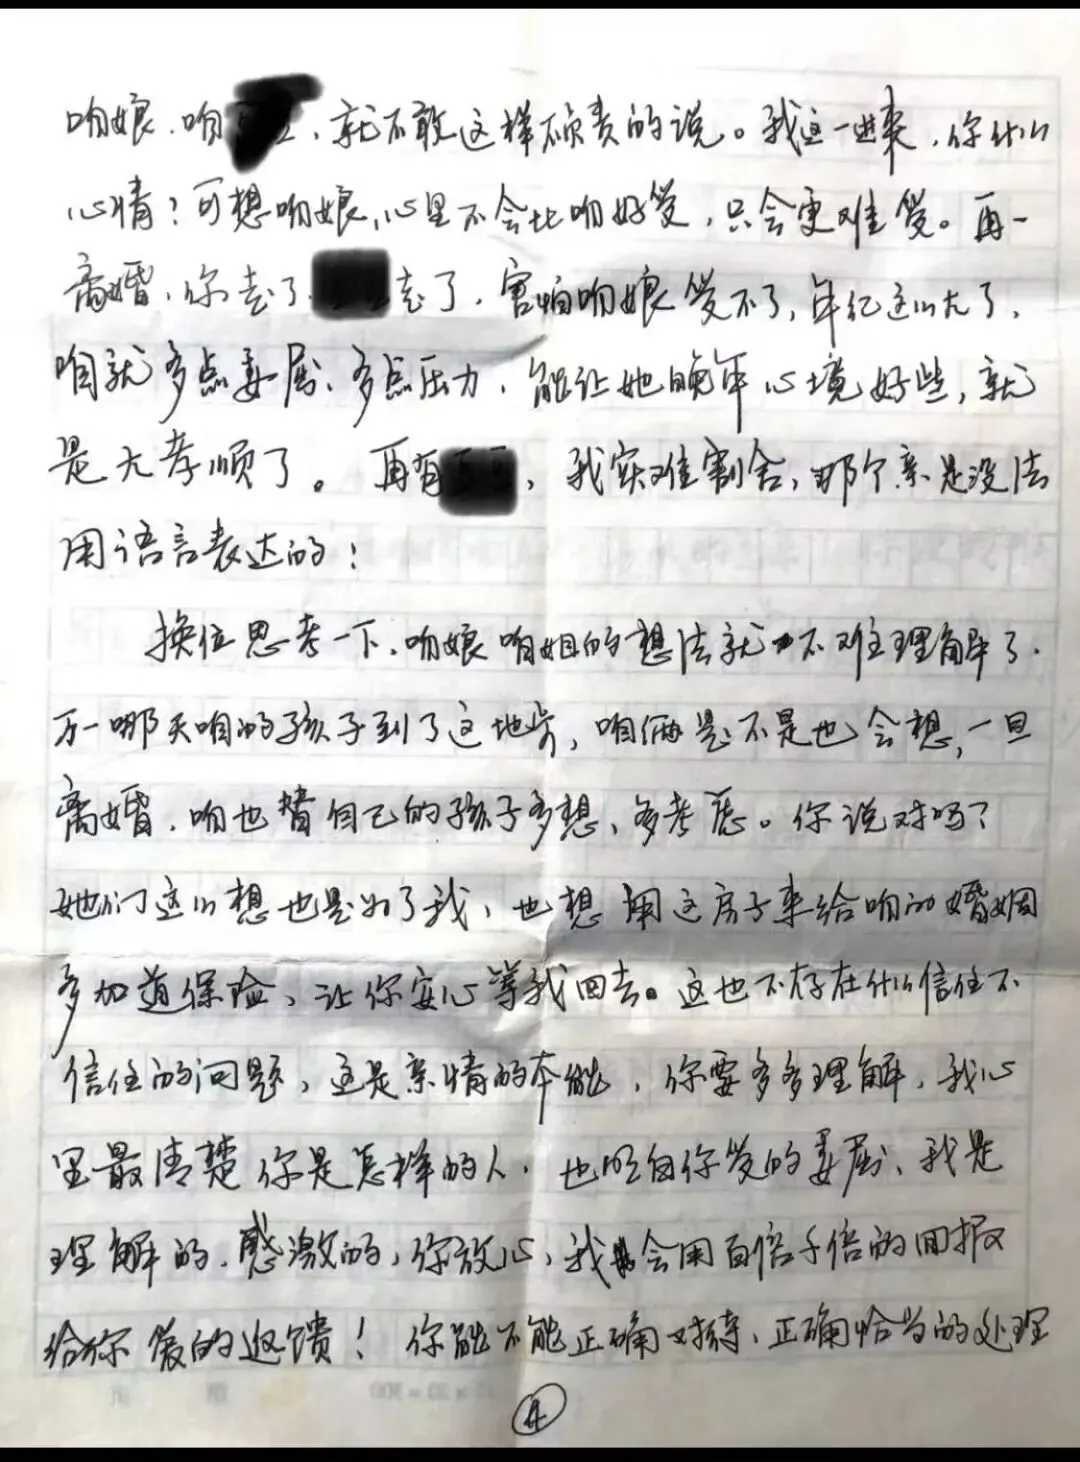 咱娘、咱，就不敢这样不负责的说。我这一进来，你什么
心情？可想咱娘，心里不会比咱好受，只会更难受。再一
离婚，你走了，走了，害怕咱娘受不了，年纪这么大了，
咱就多点委屈、多点压力，能让她晚年心境好些，就
是大孝顺了。再有，我实难割舍，那个亲是没法
用语言表达的！
换位思考一下，咱娘咱姐的想法就不难理解了。
万一哪天咱的孩子到了这地步，咱俩是不是也会想，一旦
离婚，咱也替自己的孩子多想、多考虑。你说对吗？
她们这么想也是为了我，也想用这房子来给咱的婚姻
多加道保险，让你安心等我回去。这也不存在什么信任不
信任的问题，这是亲情的本能，你要多多理解，我心
里最清楚你是怎样的人，也明白你受的委屈，我是
理解的，感激的，你放心，我会用百倍千倍的回报
给你爱的返馈！你能不能正确对待、正确恰当的处理
4